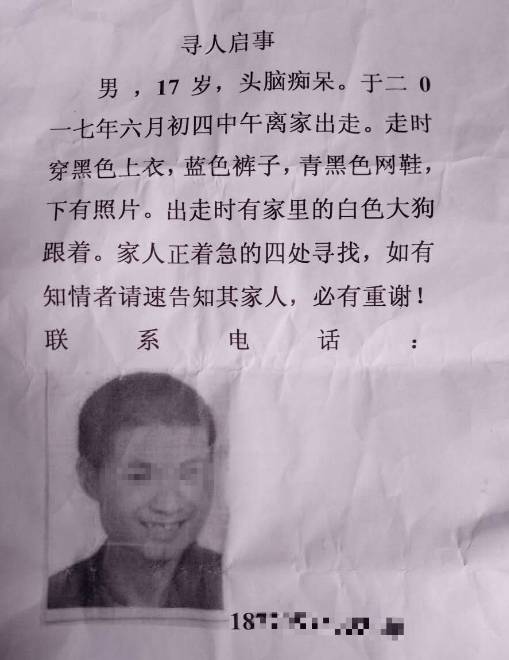 寻人启事
男，17 岁，头脑痴呆。于二 0
一七年六月初四中午离家出走。走时
穿黑色上衣，蓝色裤子，青黑色网鞋，
下有照片。出走时有家里的白色大狗
跟着。家人正着急的四处寻找，如有
知情者请速告知其家人，必有重谢！
联系电话：
18